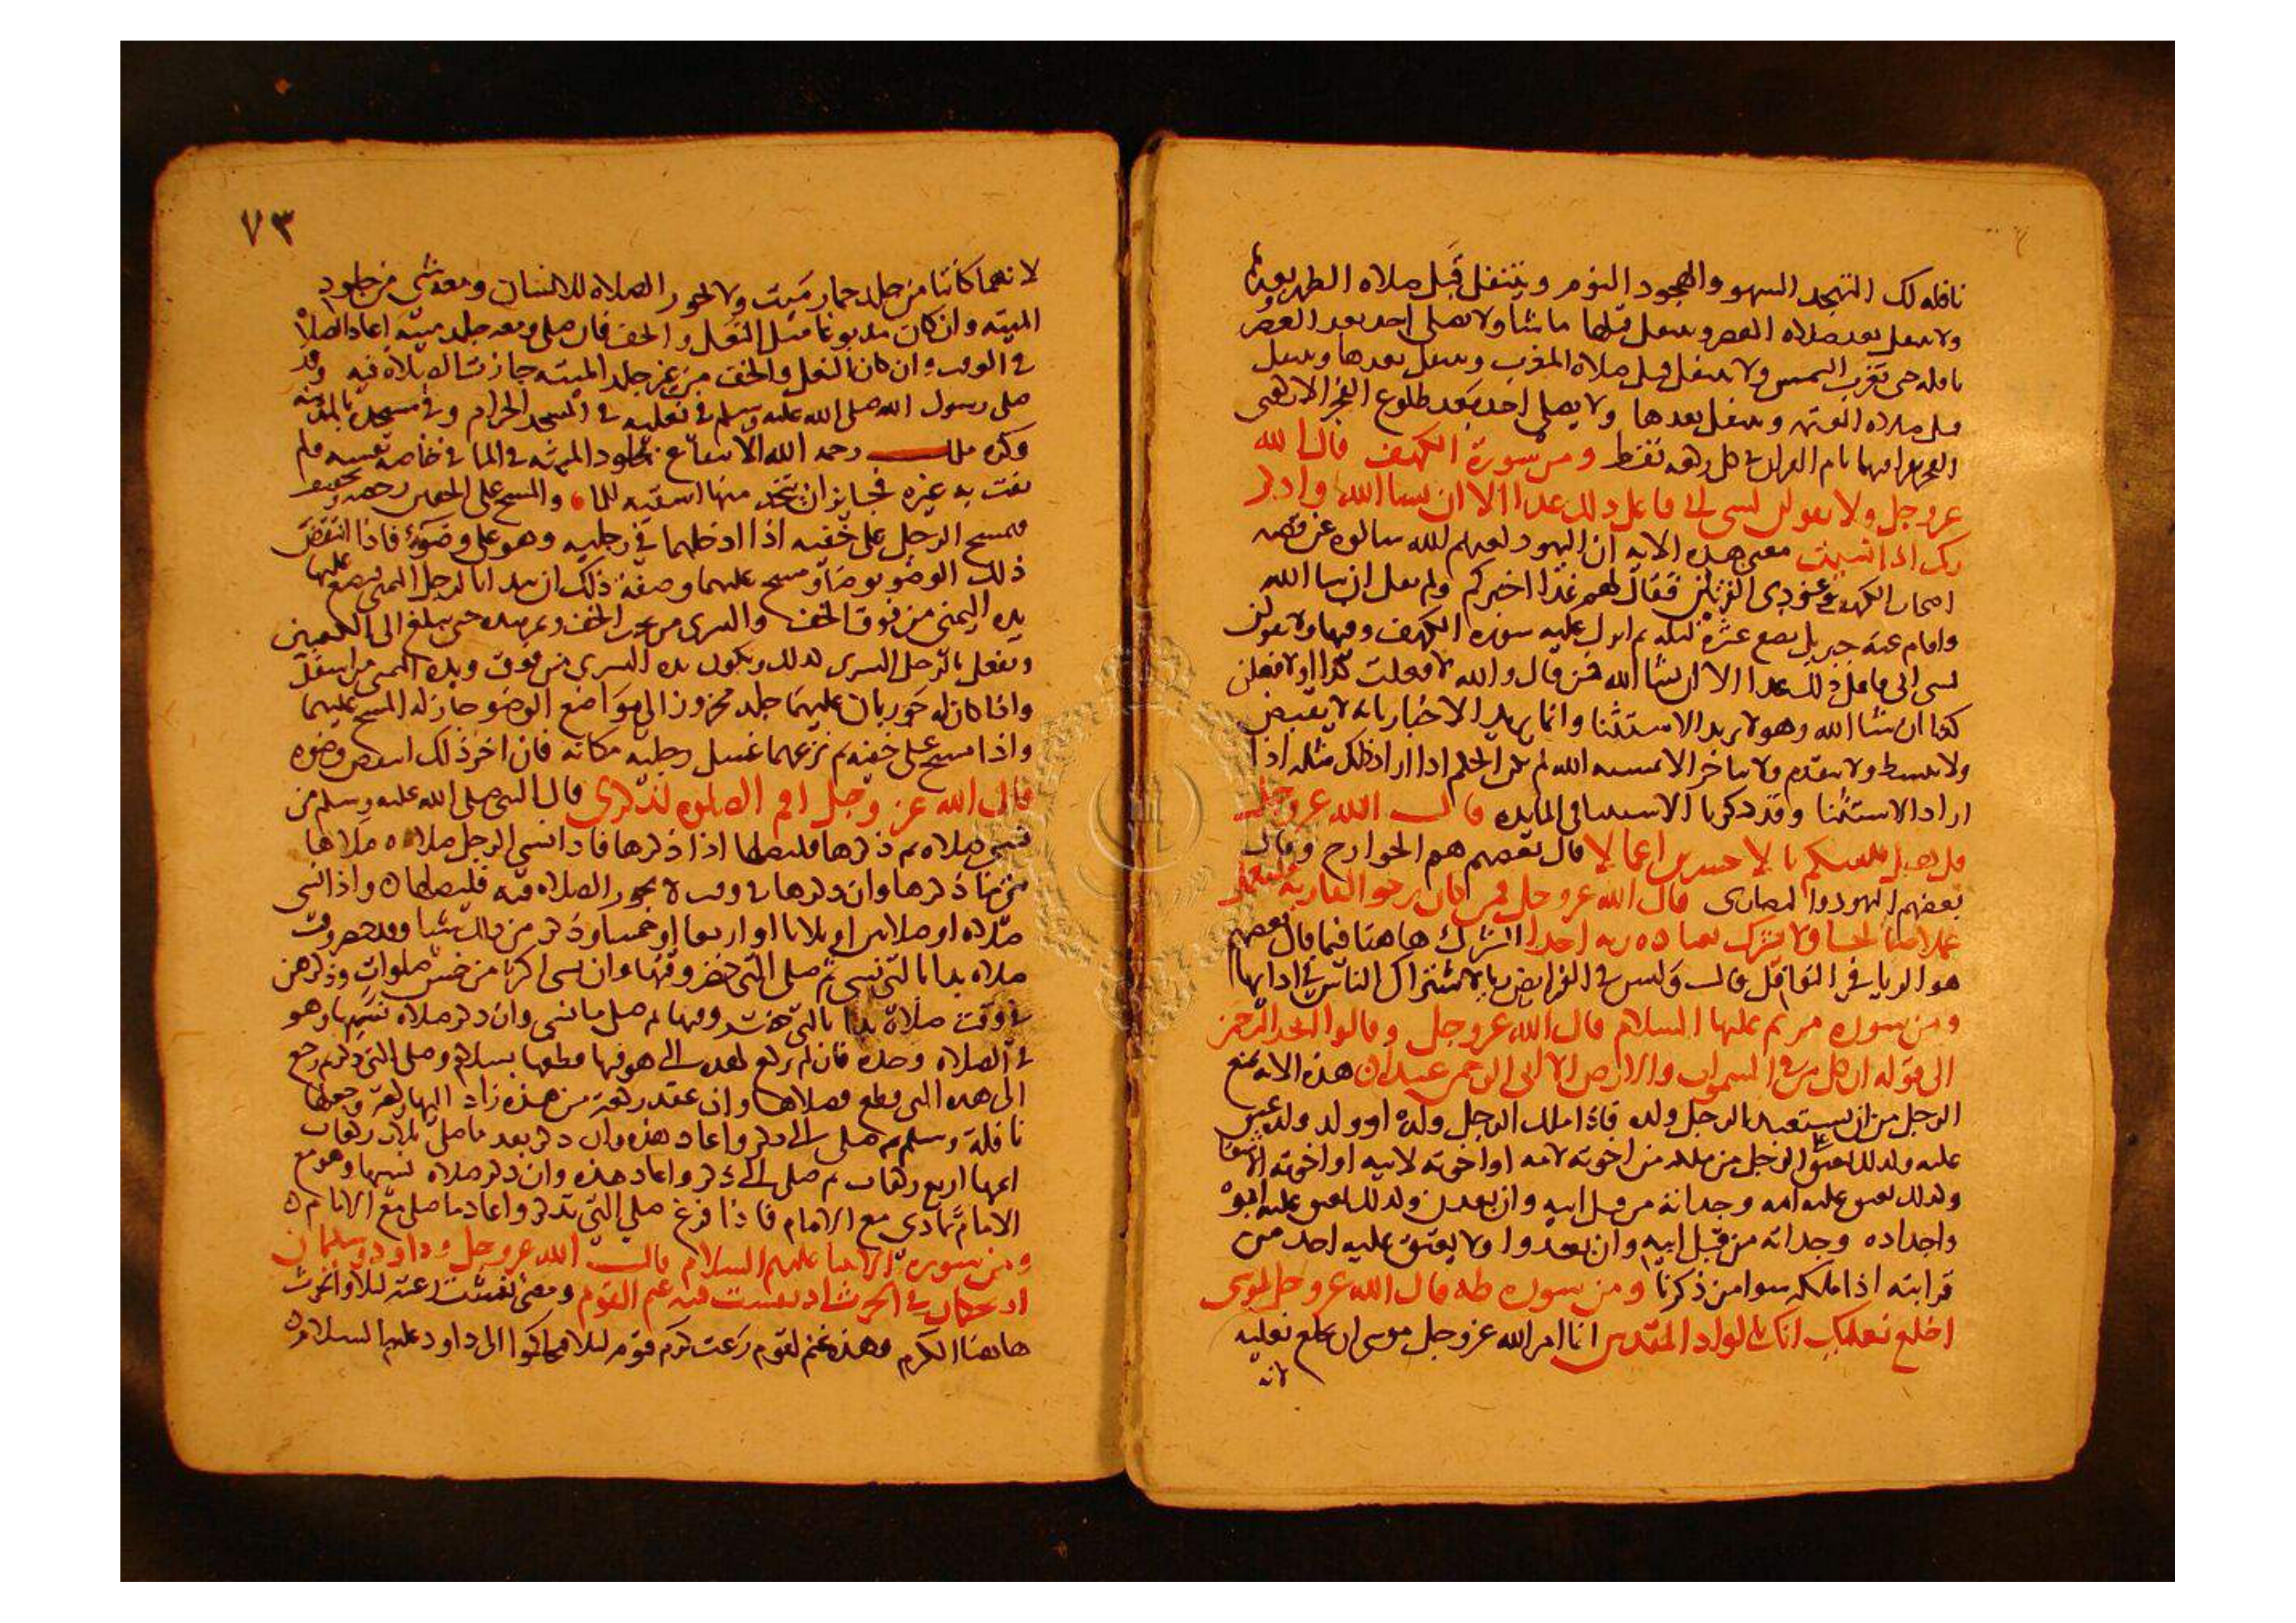 نافله لك التهجد السهو والهجود النوم ويتنفل قبل صلاه الظهر وبعدها
ولا يتنفل بعد صلاه العصر ويتنفل قبلها ما شا ولا يصلي احد بعد العصر
نافله حتى تغرب الشمس ولا يتنفل قبل صلاه المغرب ويتنفل بعدها ويتنفل
قبل صلاه العتمه ويتنفل بعدها ولا يصلي احد بعد طلوع الفجر الا ركعتي
الفجر يقرا فيهما بام القران في كل ركعه فقط ومن سورة الكهف قال الله
عز وجل ولا تقولن لشي اني فاعل ذلك غدا الا ان يشا الله واذكر
ربك اذا نسيت معنى هذه الايه ان اليهود لعنهم الله سالوه عن قصه
اصحاب الكهف وعن ذي القرنين فقال لهم غدا اخبركم ولم يقل ان شا الله
واقام عنه جبريل بضع عشرة ليله ثم انزل عليه سورة الكهف وفيها ولا تقولن
لشي اني فاعل ذلك غدا الا ان يشا الله فمن قال والله لا فعلت كذا او لافعلن
كذا ان شا الله وهو لا يريد الاستثنا وانما يريد الاخبار بانه لا يقبض
ولا يبسط ولا يتقدم ولا يتاخر الا بمشيه الله لم يكن الحكم اذا اراد ذلك مثله اذا
اراد الاستثنا وقد ذكرنا الاستثنا في المايده قال الله عز وجل
قل هل ننبئكم بالاخسرين اعمالا قال بعضهم هم الخوارج وقال
بعضهم اليهود والنصارى قال الله عز وجل فمن كان يرجو القا ربه فليعمل
عملا صالحا ولا يشرك بعباده ربه احدا الشرك هاهنا فيما قال بعضهم
هو الريا في النوافل قال وليس في الفرايض ريا لاشتراك الناس في ادايها
ومن سوره مريم عليها السلام قال الله عز وجل وقالوا اتخذ الرحمن
الى قوله ان كل من في السموات والارض الا اتى الرحمن عبدا هذه الايه تمنع
الرجل من ان يستعبد الرجل ولده فاذا ملك الرجل ولده او ولد ولده عتق
عليه وكذلك يعتق على الرجل من ملكه من اخوته لامه او اخوته لابيه او اخوته الاشقا
وكذلك يعتق عليه امه وجداته من قبل ابيه وان بعدن وكذلك يعتق عليه ابوه
واجداده وجداته من قبل ابيه وان بعدوا ولا يعتق عليه احد من
قرابته اذا ملكه سوا من ذكرنا ومن سوره طه قال الله عز وجل لموسى
اخلع نعليك انك بالواد المقدس انما امر الله عز وجل موسى ان يخلع نعليه
لانه
٧٣
لانهما كانتا من جلد حمار ميت ولا تجوز الصلاه للانسان ومعه شي من جلود
الميته وان كان مدبوغا مثل النعل والخف فان صلى ومعه جلد ميته اعاد الصلاة
في الوقت وان كان النعل والخف من غير جلد الميته جازت الصلاه فيه وقد
صلى رسول الله صلى الله عليه وسلم في نعليه في المسجد الحرام وفي مسجده بالمدينه
وكره ملك رحمه الله الانتفاع بجلود الميته في الما في خاصه نفسه ولم
يفت به غيره فجايز ان يتخذ منها اسقيه للماء والمسح على الخفين رخصه وتخفيف
فيمسح الرجل على خفيه اذا ادخلهما في رجليه وهو على وضوء فاذا انتقض
ذلك الوضو توضا ومسح عليهما وصفة ذلك ان يبدا بالرجل اليمنى فيضع عليها
يده اليمنى من فوق الخف واليسرى من تحت الخف ويمر بيده حتى يبلغ الى الكعبين
ويفعل بالرجل اليسرى كذلك ويكون يده اليسرى من فوق ويده اليمنى من اسفل
واذا كان له جوربان عليهما جلد مخروز الى مواضع الوضو جاز له المسح عليهما
واذا مسح على خفيه ثم نزعهما غسل رجليه مكانه فان اخر ذلك انتقض وضوه
قال الله عز وجل اقم الصلوه لذكري قال النبي صلى الله عليه وسلم من
نسي صلاه ثم ذكرها فليصلها اذا ذكرها فاذا نسي الرجل صلاه صلاها
متى ما ذكرها وان ذكرها في وقت لا تجوز الصلاه فيه فليصلها واذا نسي
صلاه او صلاتين او ثلاثا او اربعا او خمسا وذكر من ذلك شيا وقد حضر وقت
صلاه بدا بالتي نسي ثم صلى التي حضر وقتها وان نسي اكثر من خمس صلوات وذكرهن
في وقت صلاة بدا بالتي حضر وقتها ثم صلى ما نسي وان ذكر صلاه نسيها وهو
في الصلاه وحده فان لم يركع لهذه التي هو فيها قطعها بسلام وصلى التي ذكر ثم رجع
الى هذه التي قطع فصلاها وان عقد ركعة من هذه زاد اليها ركعة وجعلها
نافلة وسلم ثم صلى التي ذكر واعاد هذه وان ذكر بعد ما صلى ثلاث ركعات
اتمها اربع ركعات ثم صلى التي ذكر واعاد هذه وان ذكر صلاه نسيها وهو مع
الامام تمادى مع الامام فاذا فرغ صلى التي تذكر واعاد ما صلى مع الامام
ومن سوره الانبيا عليهم السلام قال الله عز وجل وداود وسليمان
اذ يحكمان في الحرث اذ نفشت فيه غنم القوم ومعنى نفشت رعته ليلا والحرث
هاهنا الكرم وهذه غنم لقوم رعت كرم قوم ليلا فتحاكموا الى داود عليه السلام